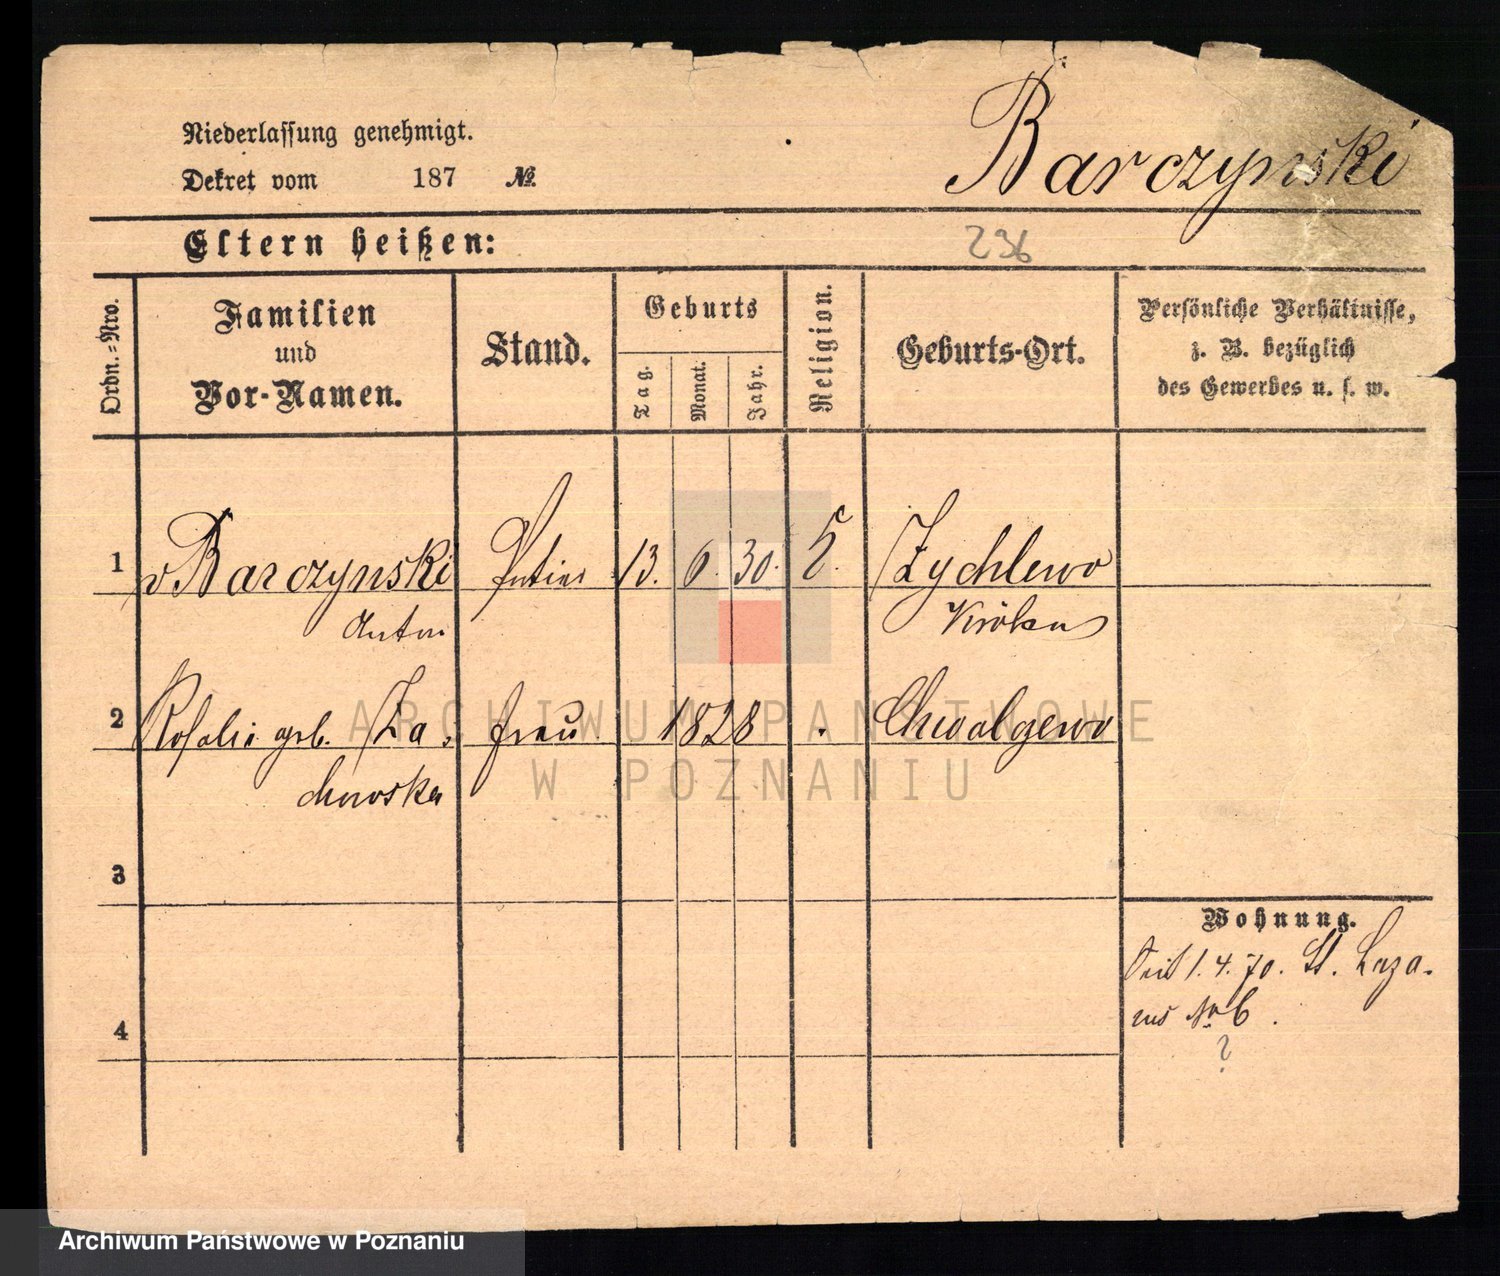 Niederlassung genehmigt.
Dekret vom 187 №
Barczynski
Eltern heißen:
236
Ordn.=Nro.
Familien
und
Vor-Namen.
Stand.
Geburts
Tag.
Monat.
Jahr.
Religion.
Geburts-Ort.
Persönliche Verhältnisse,
z. B. bezüglich
des Gewerbes u. s. w.
1 v Barczynski 13. 6. 30. Zychlewo
Anton Kröben
2 Rosalie geb. Za= Frau 1828 Chwalgewo
chowska
3
4
Wohnung.
Seit 1. 4. 70. St. Laza-
rus No 6.
?
ARCHIWUM PAŃSTWOWE
W POZNANIU
Archiwum Państwowe w Poznaniu